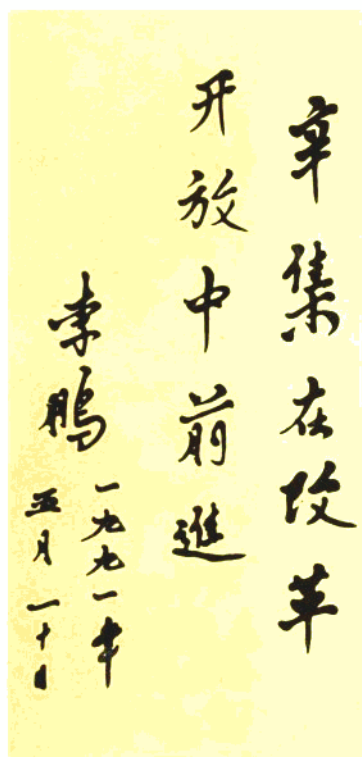 辛集在改革
开放中前進
李鹏
一九九一年
五月一十日